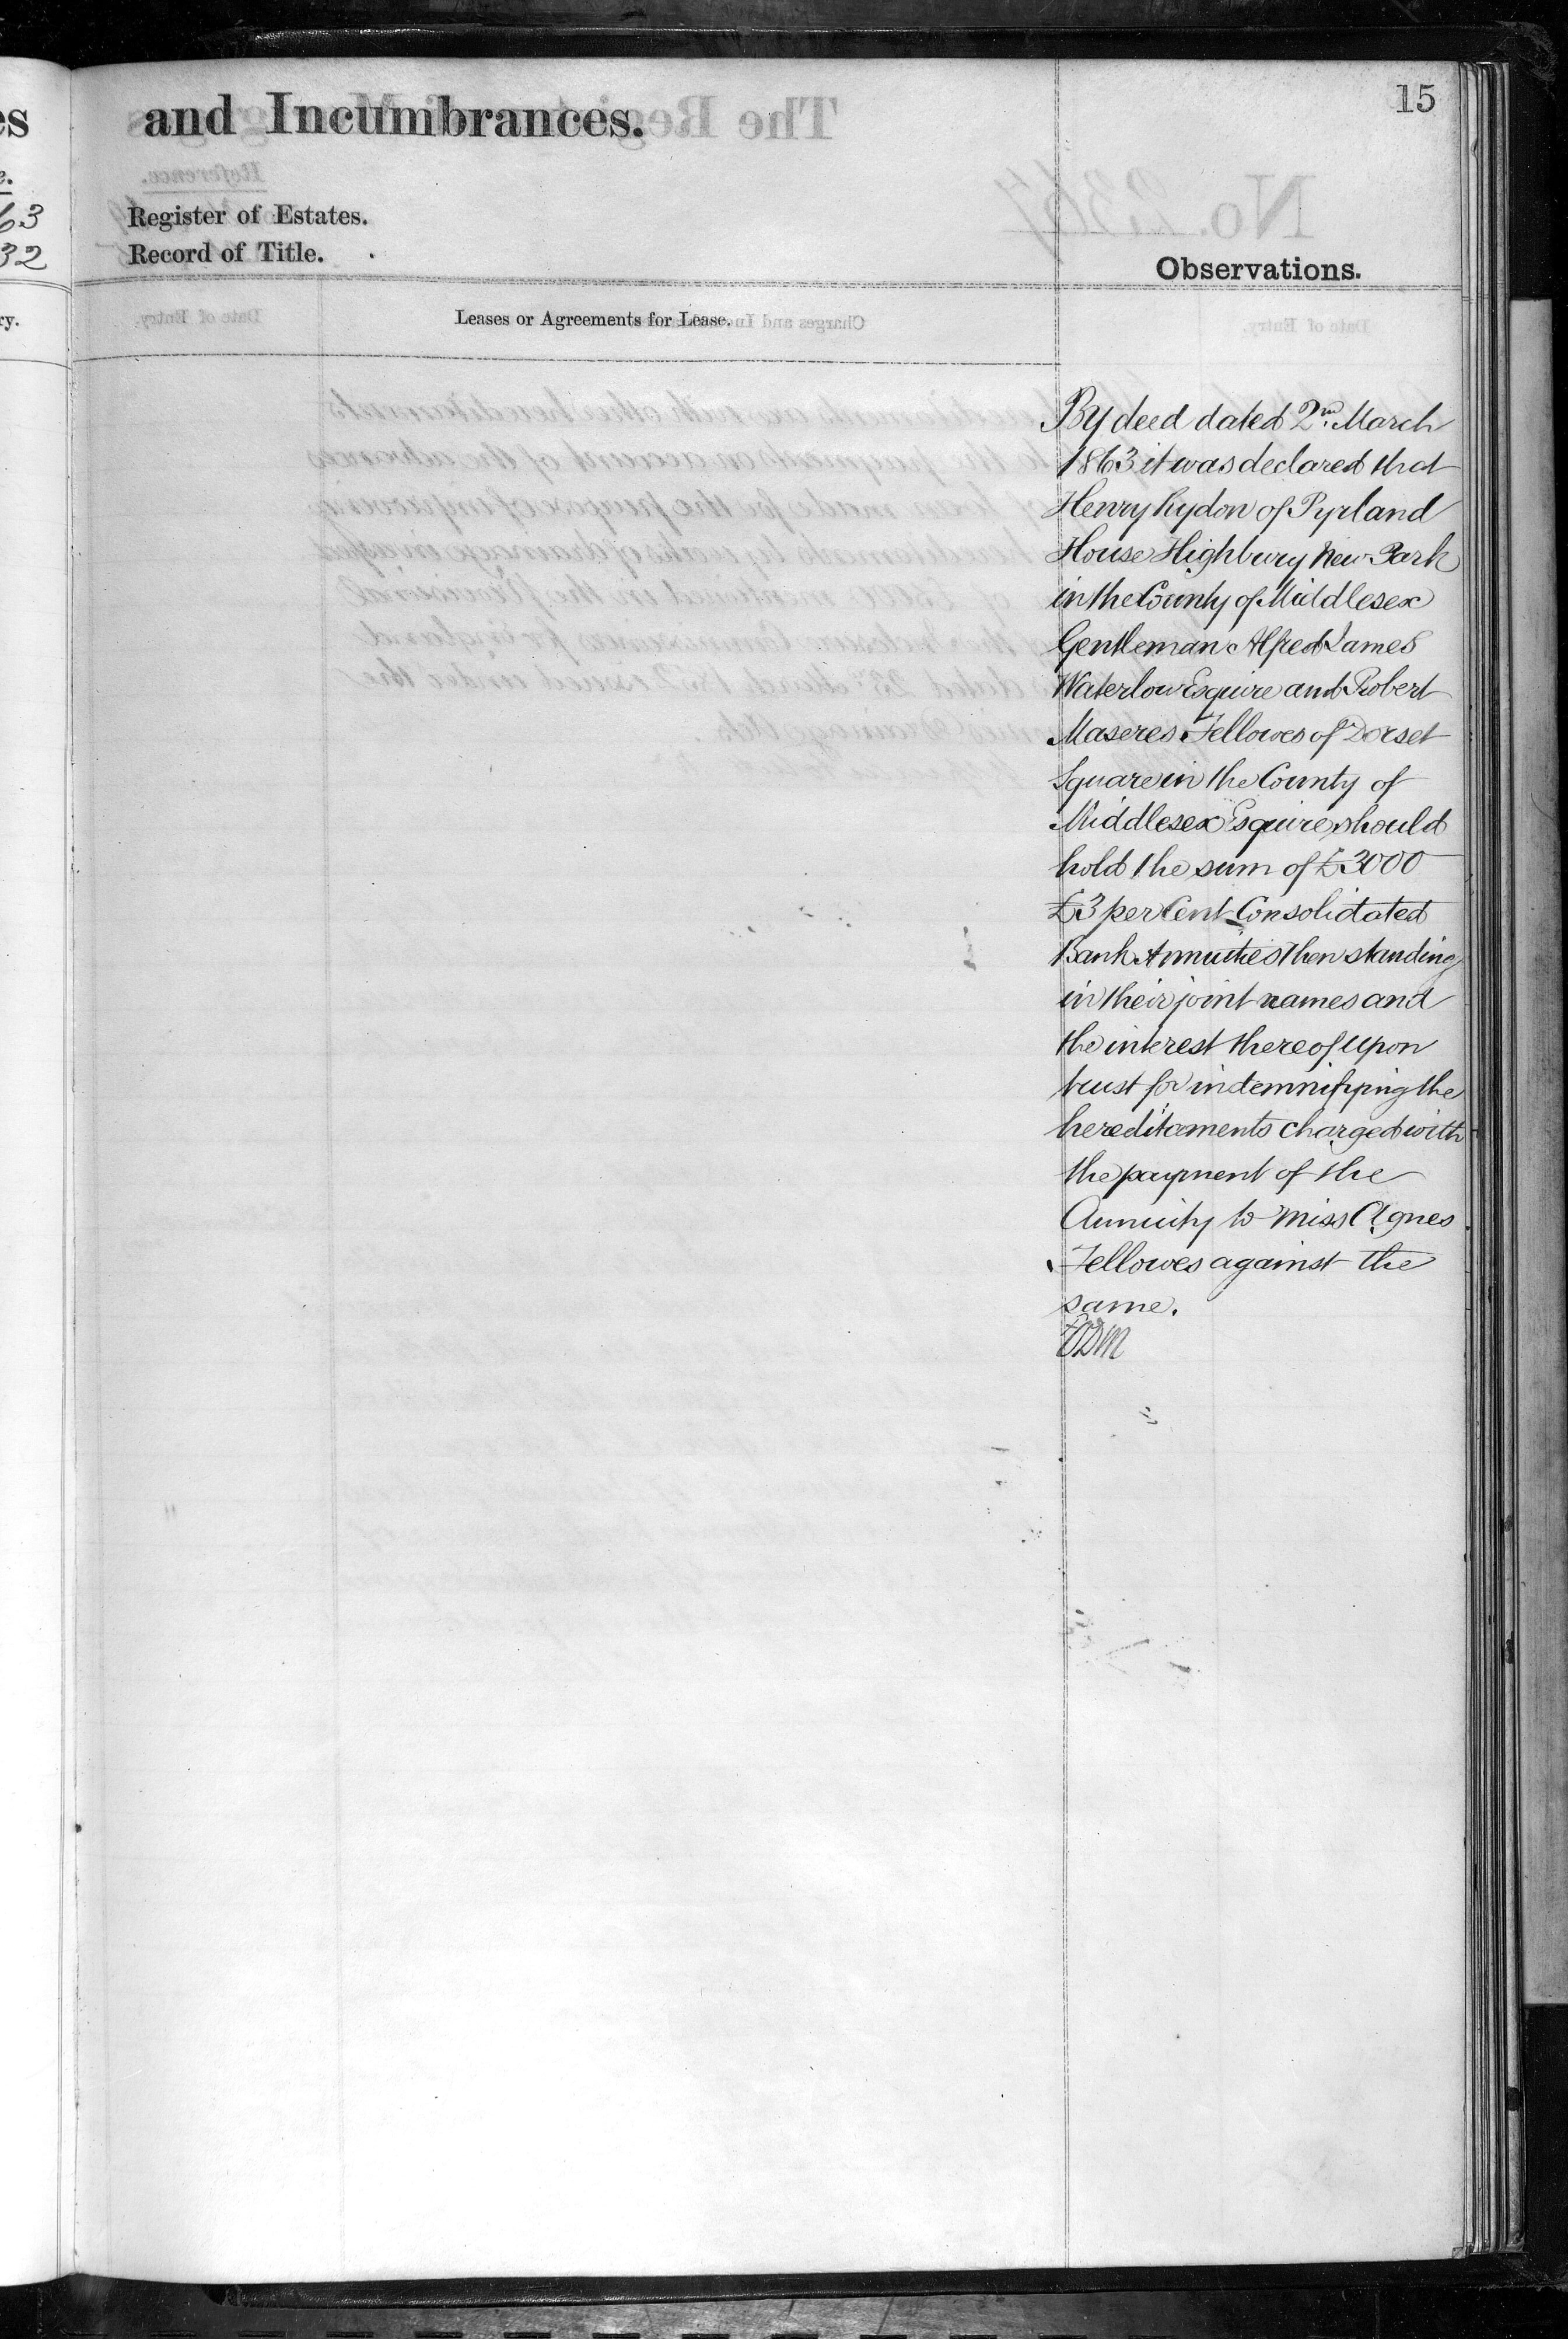 15
es and Incumbrances.
e.
63 Register of Estates.
32 Record of Title.
Observations.
ry.
Leases or Agreements for Lease.
By deed dated 2nd March
1863 it was declared that
Henry Rydon of Pyrland
House Highbury New Park
in the County of Middlesex
Gentleman Alfred James
Waterlow Esquire and Robert
Maseres Fellowes of Dorset
Square in the County of
Middlesex Esquire should
hold the sum of £3000
£3 per Cent Consolidated
Bank Annuities then standing
in their joint names and
the interest thereof upon
trust for indemnifying the
hereditaments charged with
the payment of the
Annuity to Miss Agnes
Fellowes against the
same.